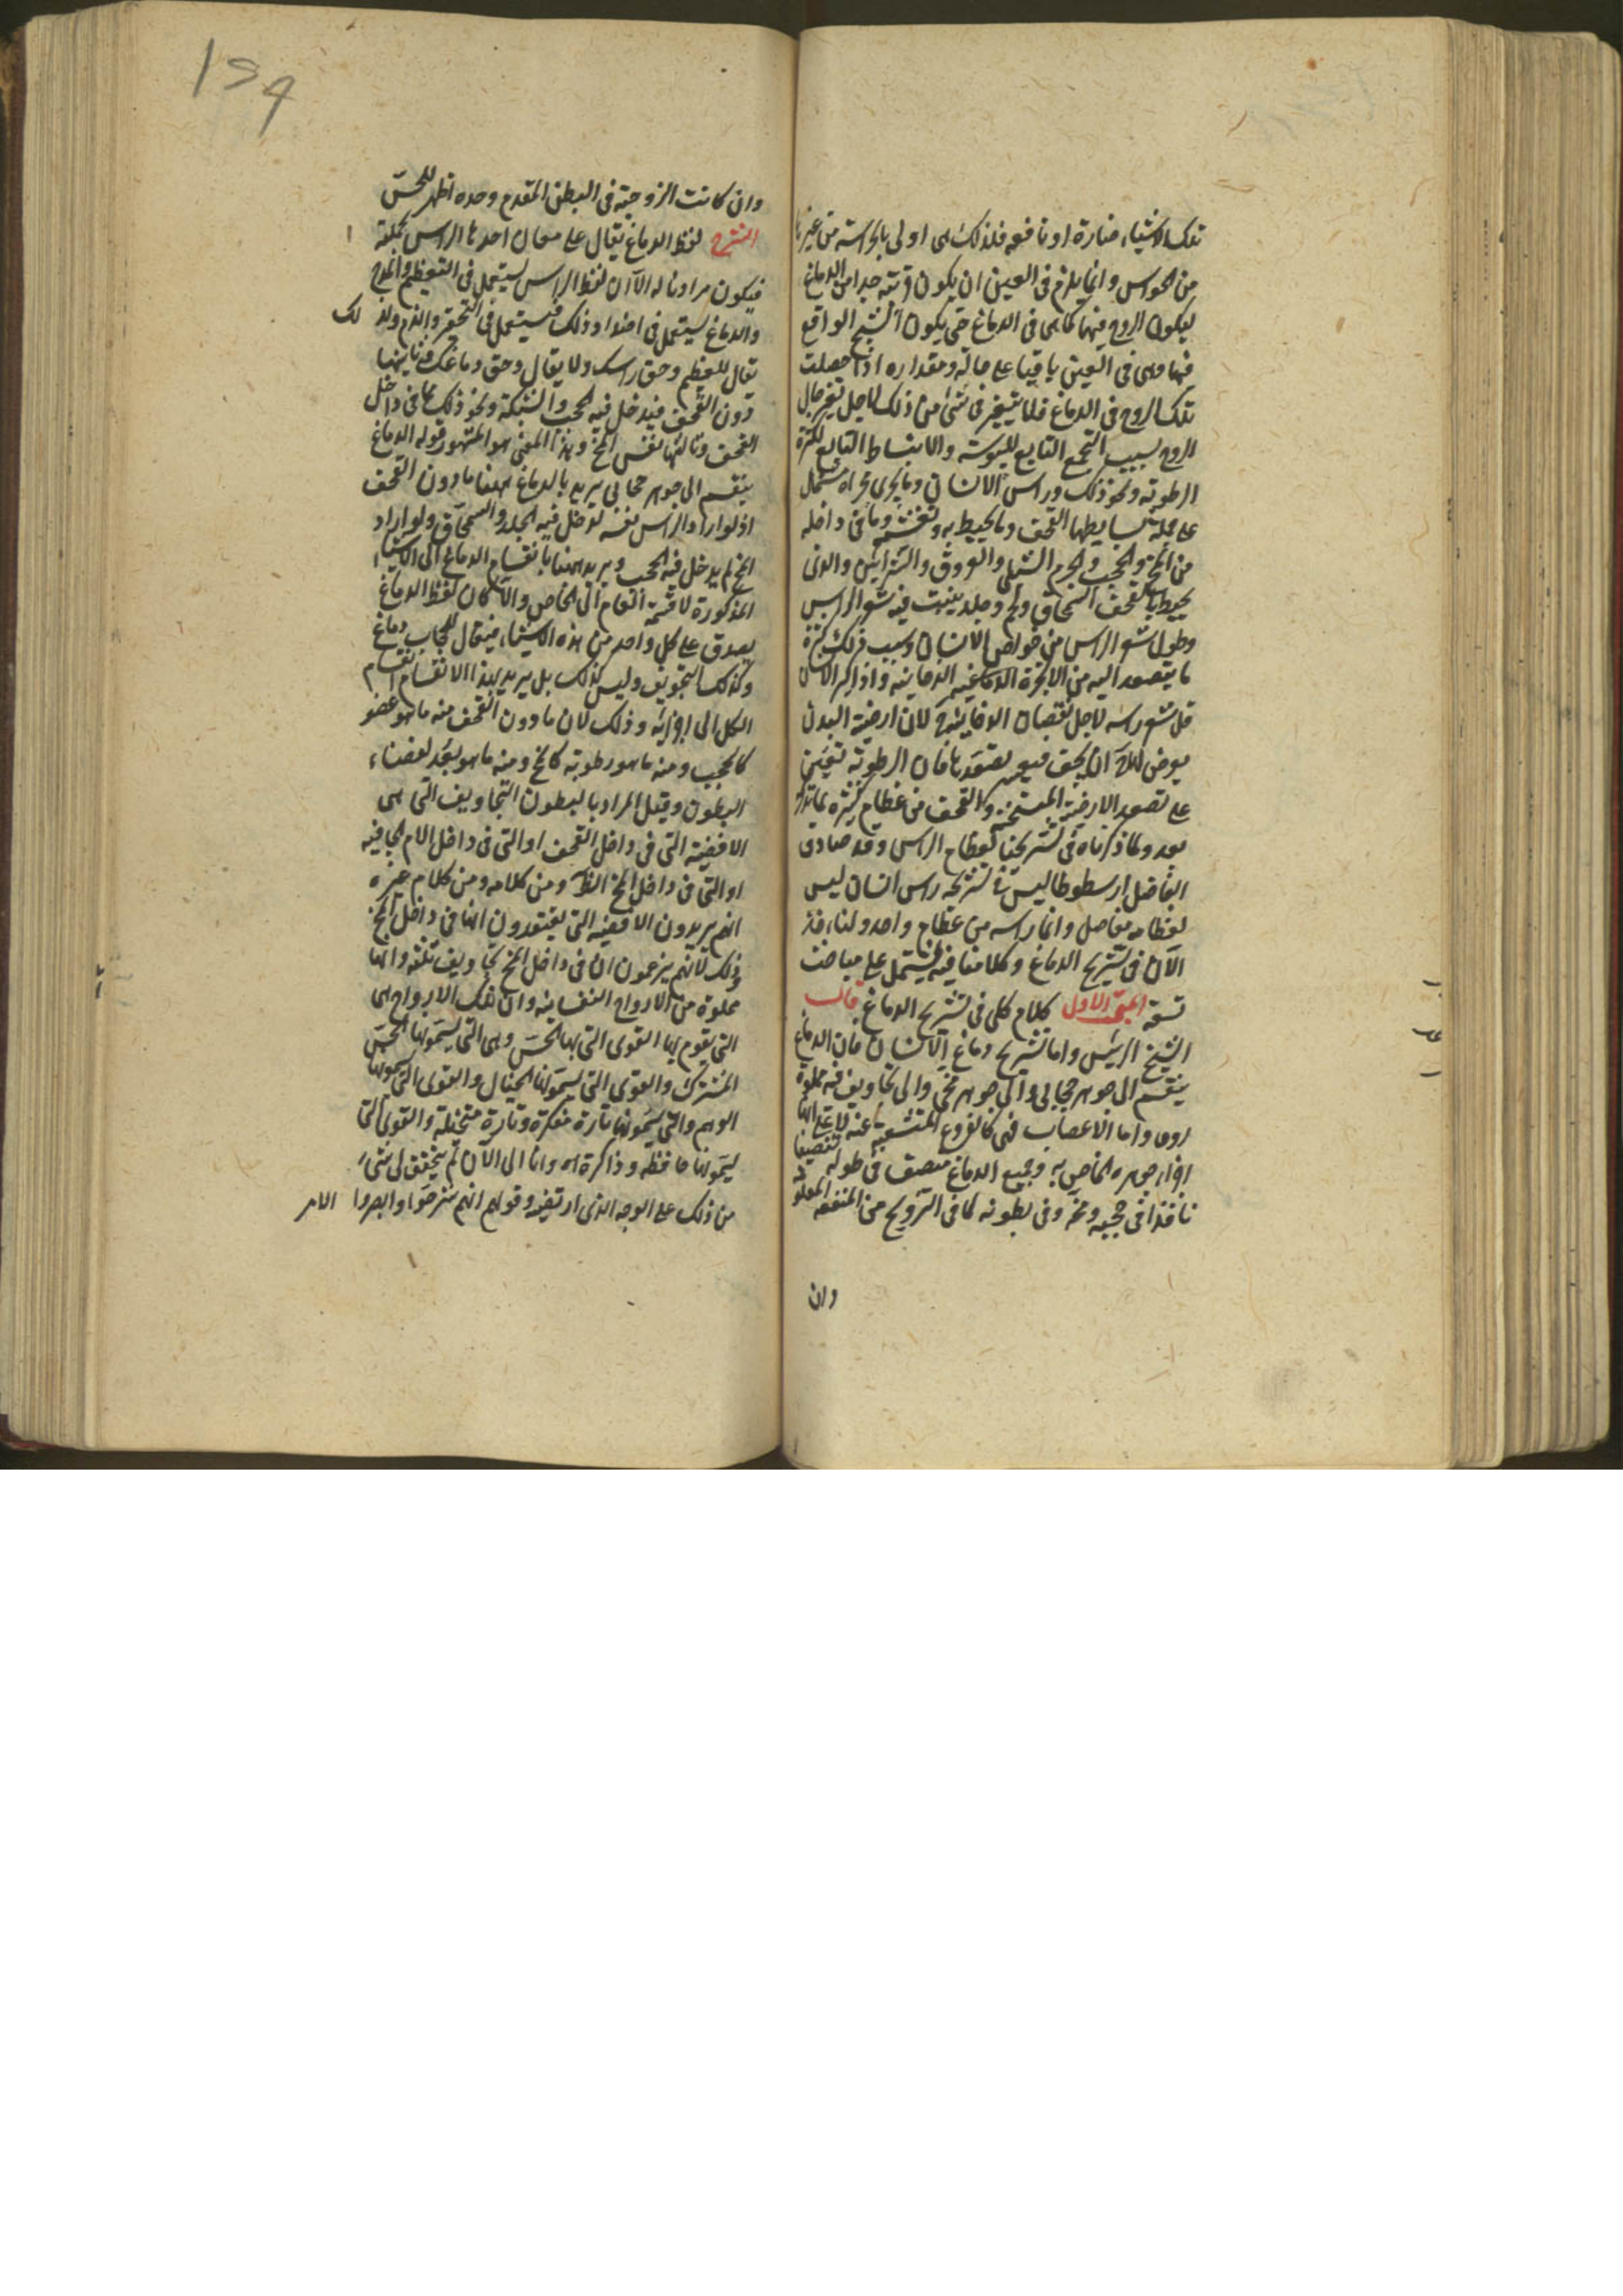 تلك الاشياء ضارة او نافعه فلذلك هى اولى بالحراسة من غيرها
من الحواس وانما يلزم فى العين ان يكون قريبة جدا من الدماغ
ليكون الروح فيها كما هى فى الدماغ حتى يكون الشبح الواقع
فيها وهى فى العين باقيا على حاله ومقداره اذا حصلت
تلك الروح فى الدماغ فلا يتغير فى شئ من ذلك لاجل تغير حال
الروح بسبب التجمع التابع لليبوسة والانبساط التابع لكثرة
الرطوبة ونحو ذلك وراس الانسان وما يجرى مجراه مشتمل
على جملة بسايطها القحف وما يحيط به وتغشيه وما فى داخله
من المخ والحجب والجرم الشبكى والعروق والشرايين والذى
يحيط بالقحف السمحاق ولحم وجلد ينبت فيه شعر الراس
وطول شعر الراس من خواص الانسان وسبب ذلك كثرة
ما يتصعد اليه من الابخرة الدماغية الدخانية واذا كبر الانسان
قل شعر راسه لاجل نقصان الدخانية لان ارضية البدن
يعرض لها ان يجف فيعسر تصعدها فان الرطوبة تعين
على تصعد الارضية المتسخنة والقحف من عظام كثيرة لما نذكره
بعد ولما ذكرناه فى تشريحنا لعظام الراس وقد صادف
الفاضل ارسطوطاليس فى تشريحه راس انسان ليس
لعظامه مفاصل وانما راسه من عظام واحد ولناخذ
الآن فى تشريح الدماغ وكلامنا فيه يشتمل على مباحث
تسعة المبحث الاول كلام كلى فى تشريح الدماغ قال
الشيخ الرئيس واما تشريح دماغ الانسان فان الدماغ
ينقسم الى جوهر حجابى والى جوهر مخى والى تجاويف فيه مملوة
روحا واما الاعصاب فهى كالفروع المتشعبة عنه لا على انها
اجزاء جوهره الخاص به وجميع الدماغ منصف فى طوله تنصيفا
نافذا فى حجبه ومخه وفى بطونه لما فى التزويج من المنفعه المعلومة
وان
١٥٩
وان كانت الزوجية فى البطن المقدم وحده اظهر للحس
الشرح لفظ الدماغ يقال على معان احدها الراس بجملته
فيكون مرادفا له الا ان لفظ الراس يستعمل فى التعظيم والمدح
والدماغ يستعمل فى اضداد ذلك فيستعمل فى التحقير والذم ولذلك
يقال للعظيم وحق راسك ولا يقال وحق دماغك وثانيها
دون القحف فيدخل فيه الحجب والشبكة ونحو ذلك مما فى داخل
القحف وثالثها نفس المخ وبهذا المعنى هو المشهور قوله الدماغ
ينقسم الى جوهر حجابى يريد بالدماغ ههنا ما دون القحف
اذ لو اراد الراس نفسه لدخل فيه الجلد والسمحاق ولو اراد
المخ لم يدخل فيه الحجب ويريد ههنا بانقسام الدماغ الى الاشياء
المذكورة لا قسمة العام الى الخاص والا لكان لفظ الدماغ
يصدق على كل واحد من هذه الاشياء فيقال للحجاب دماغ
وكذلك التجويف وليس كذلك بل يريد بهذا الانقسام انقسام
الكل الى اجزائه وذلك لان ما دون القحف منه ما هو عضو
كالحجب ومنه ما هو رطوبة كالمخ ومنه ما هو بعد لفضاء
البطون وقيل المراد بالبطون التجاويف التى هى
الافضية التى فى داخل القحف او التى فى داخل الام الجافيه
او التى فى داخل المخ الظاهر ومن كلامه ومن كلام غيره
انهم يريدون الافضية التى يعتقدون انها فى داخل المخ
وذلك لانهم يزعمون ان فى داخل المخ تجاويف ثلثة وانها
مملوة من الارواح النفسانية وان تلك الارواح هى
التى يقوم بها القوى التى بها الحس وهى التى يسمونها الحس
المشترك والقوى التى يسمونها الخيال والقوى التى يسمونها
الوهم والتى يسمونها تارة مفكرة وتارة متخيلة والقوى التى
يسمونها حافظه وذاكرة وانا الى الآن لم يتحقق لى شئ
من ذلك على الوجه الذى ارتضيه وقولهم انهم شرحوا وابصروا الامر